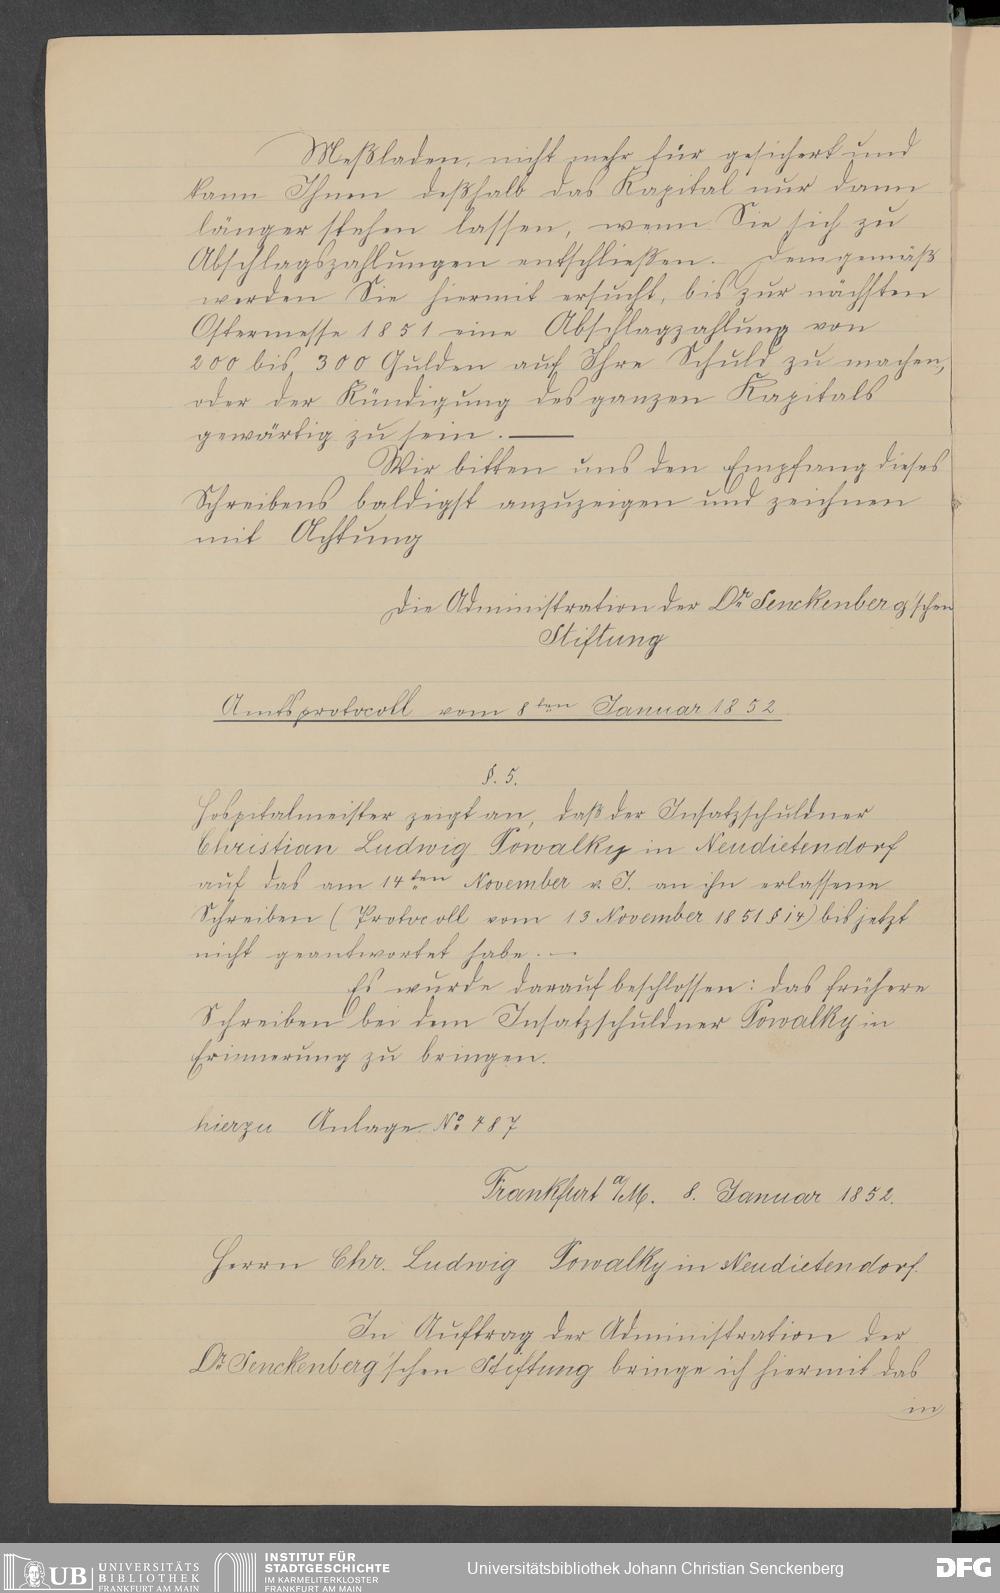 Meßladen, nicht mehr für gesichert und
kann Ihnen deßhalb das Kapital nur dann
länger stehen lassen, wenn Sie sich zu
Abschlagszahlungen entschließen. Demgemäß
werden Sie hiermit ersucht, bis zur nächsten
Ostermesse 1851 eine Abschlagzahlung von
200 bis 300 Gulden auf Ihre Schuld zu machen,
oder der Kündigung des ganzen Kapitals
gewärtig zu sein. —
Wir bitten uns den Empfang dieses
Schreibens baldigst anzuzeigen und zeichnen
mit Achtung
Die Administration der Dr. Senckenberg'schen
Stiftung
Amtsprotocoll vom 8ten Januar 1852
§. 5.
Hospitalmeister zeigt an, daß der Insatzschuldner
Christian Ludwig Powalky in Neudietendorf
auf das am 14ten November v. J. an ihn erlassene
Schreiben (Protocoll vom 13 November 1851 § 14) bis jetzt
nicht geantwortet habe. —
Es wurde darauf beschlossen: das frühere
Schreiben bei dem Insatzschuldner Powalky in
Erinnerung zu bringen.
hierzu Anlage No 487
Frankfurt a/M. 8. Januar 1852.
Herrn Chr. Ludwig Powalky in Neudietendorf.
In Auftrag der Administration der
Dr. Senckenberg'schen Stiftung bringe ich hiermit das
in
UB UNIVERSITÄTS
BIBLIOTHEK
FRANKFURT AM MAIN
INSTITUT FÜR
STADTGESCHICHTE
IM KARMELITERKLOSTER
FRANKFURT AM MAIN
Universitätsbibliothek Johann Christian Senckenberg
DFG